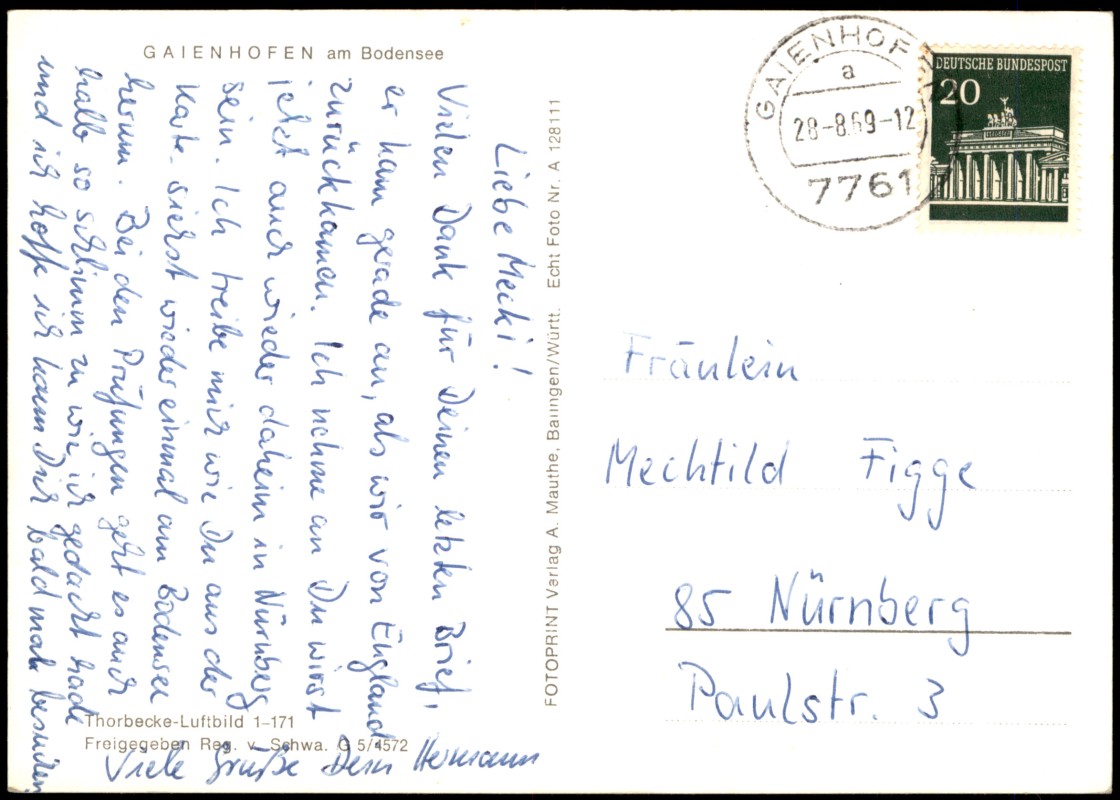 GAIENHOFEN am Bodensee
Liebe Mecki!
Vielen Dank für Deinen letzten Brief,
er kam gerade an, als wir von England
zurückkamen. Ich nehme an Du wirst
jetzt auch wieder daheim in Nürnberg
sein. Ich treibe mich wie Du aus der
Karte siehst wieder einmal am Bodensee
herum. Bei den Prüfungen geht es auch
halb so schlimm zu wie ich gedacht habe
und ich hoffe ich kann Dich bald mal besuchen.
Viele Grüße Dein Hermann
Thorbecke-Luftbild 1-171
Freigegeben Reg. v. Schwa. G 5/4572
FOTOPRINT Verlag A. Mauthe, Balingen/Württ. Echt Foto Nr. A 128111
GAIENHOF
a
28-8.69-12
7761
DEUTSCHE BUNDESPOST
20
Fräulein
Mechtild Figge
85 Nürnberg
Paulstr. 3